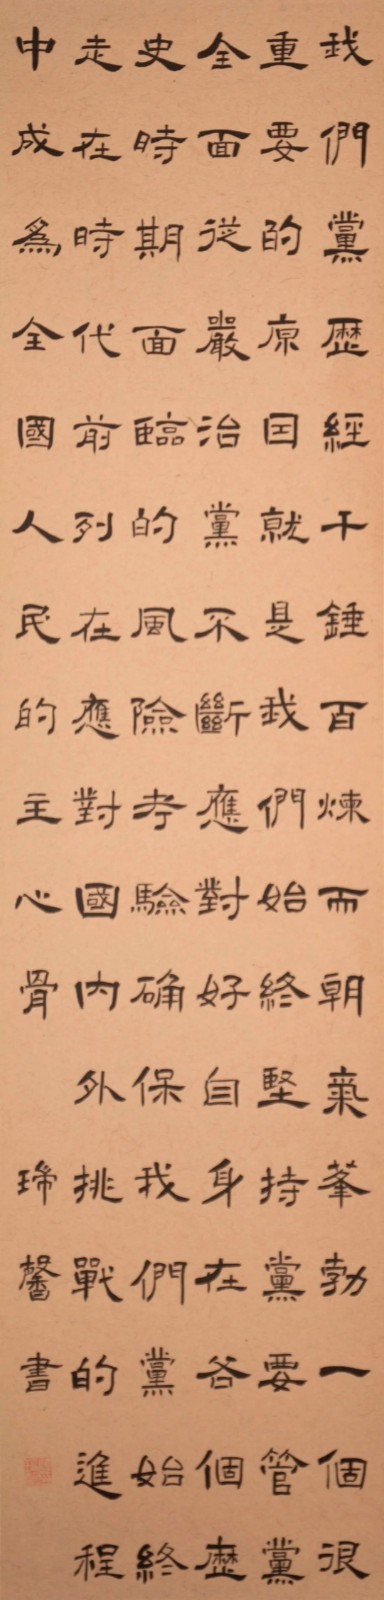 我們黨歷經千錘百煉而朝氣莑勃一個很
重要的原因就是我們始終堅持黨要管黨
全面從嚴治黨不斷應對好自身在各個歷
史時期面臨的風險考驗确保我們黨始終
走在時代前列在應對國內外挑戰的進程
中成爲全國人民的主心骨 馨書